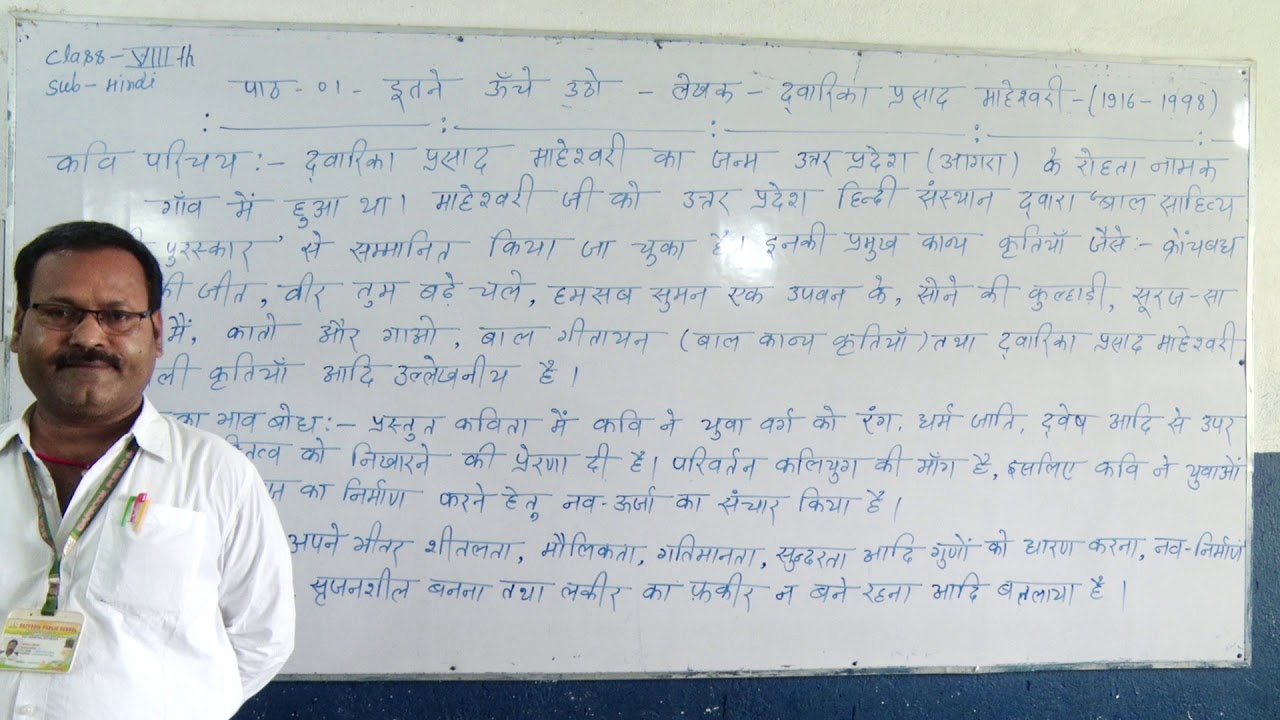 Class - VIIIth
Sub - Hindi
पाठ - 01 - इतने ऊँचे उठो - लेखक - द्वारिका प्रसाद माहेश्वरी - (1916 - 1998)
कवि परिचय :- द्वारिका प्रसाद माहेश्वरी का जन्म उत्तर प्रदेश (आगरा) के रोहता नामक
गाँव में हुआ था। माहेश्वरी जी को उत्तर प्रदेश हिन्दी संस्थान द्वारा "बाल साहित्य
पुरस्कार" से सम्मानित किया जा चुका है। इनकी प्रमुख काव्य कृतियाँ जैसे :- क्रौंचवध
की जीत, वीर तुम बढ़े चले, हमसब सुमन एक उपवन के, सोने की कुल्हाड़ी, सूरज-सा
मैं, कातो और गाओ, बाल गीतायन (बाल काव्य कृतियाँ) तथा द्वारिका प्रसाद माहेश्वरी
ली कृतियाँ आदि उल्लेखनीय है।
का भाव बोध :- प्रस्तुत कविता में कवि ने युवा वर्ग को रंग, धर्म जाति, द्वेष आदि से उपर
को निखारने की प्रेरणा दी है। परिवर्तन कलियुग की माँग है, इसलिए कवि ने युवाओं
का निर्माण करने हेतु नव-ऊर्जा का संचार किया है।
अपने भीतर शीतलता, मौलिकता, गतिमानता, सुन्दरता आदि गुणों को धारण करना, नव-निर्माण
सृजनशील बनना तथा लकीर का फ़कीर न बने रहना आदि बतलाया है।